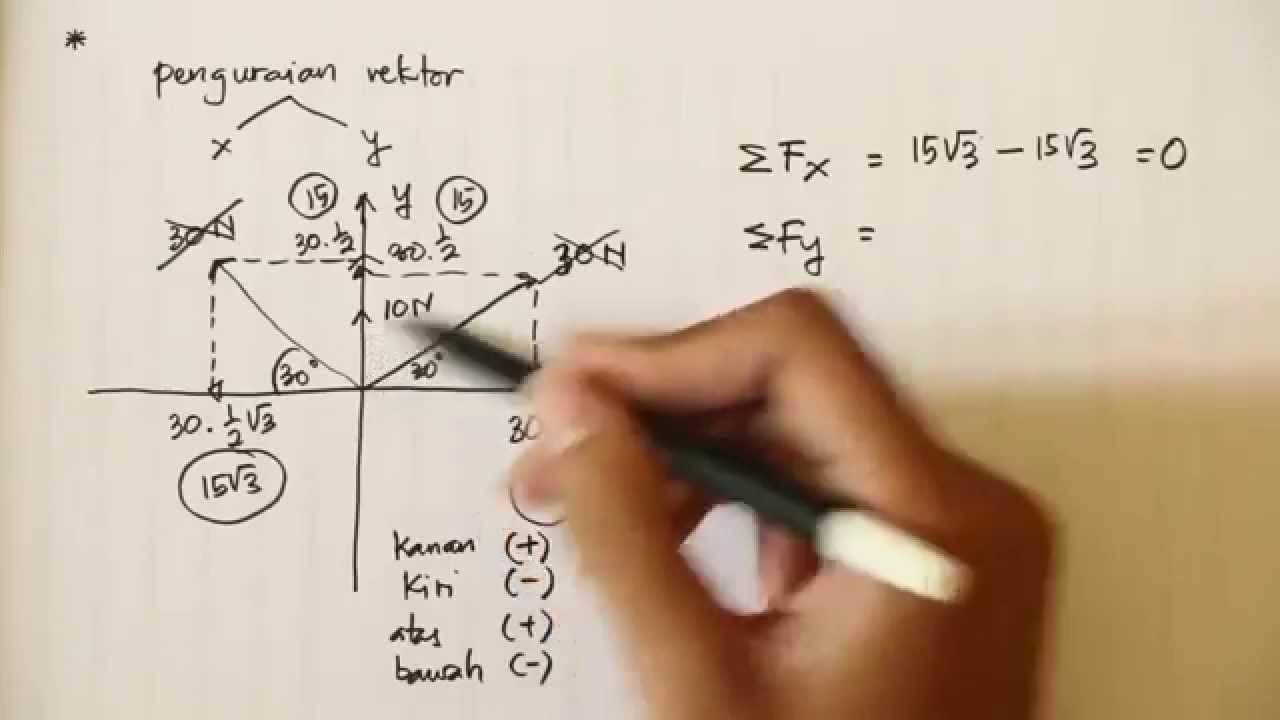 *
penguraian vektor
x y
15 y 15
30N 30.½ 30.½ 30N
10N
30° 30°
30.½√3 30
15√3
Kanan (+)
Kiri (-)
atas (+)
bawah (-)
ΣFx = 15√3 - 15√3 = 0
ΣFy =